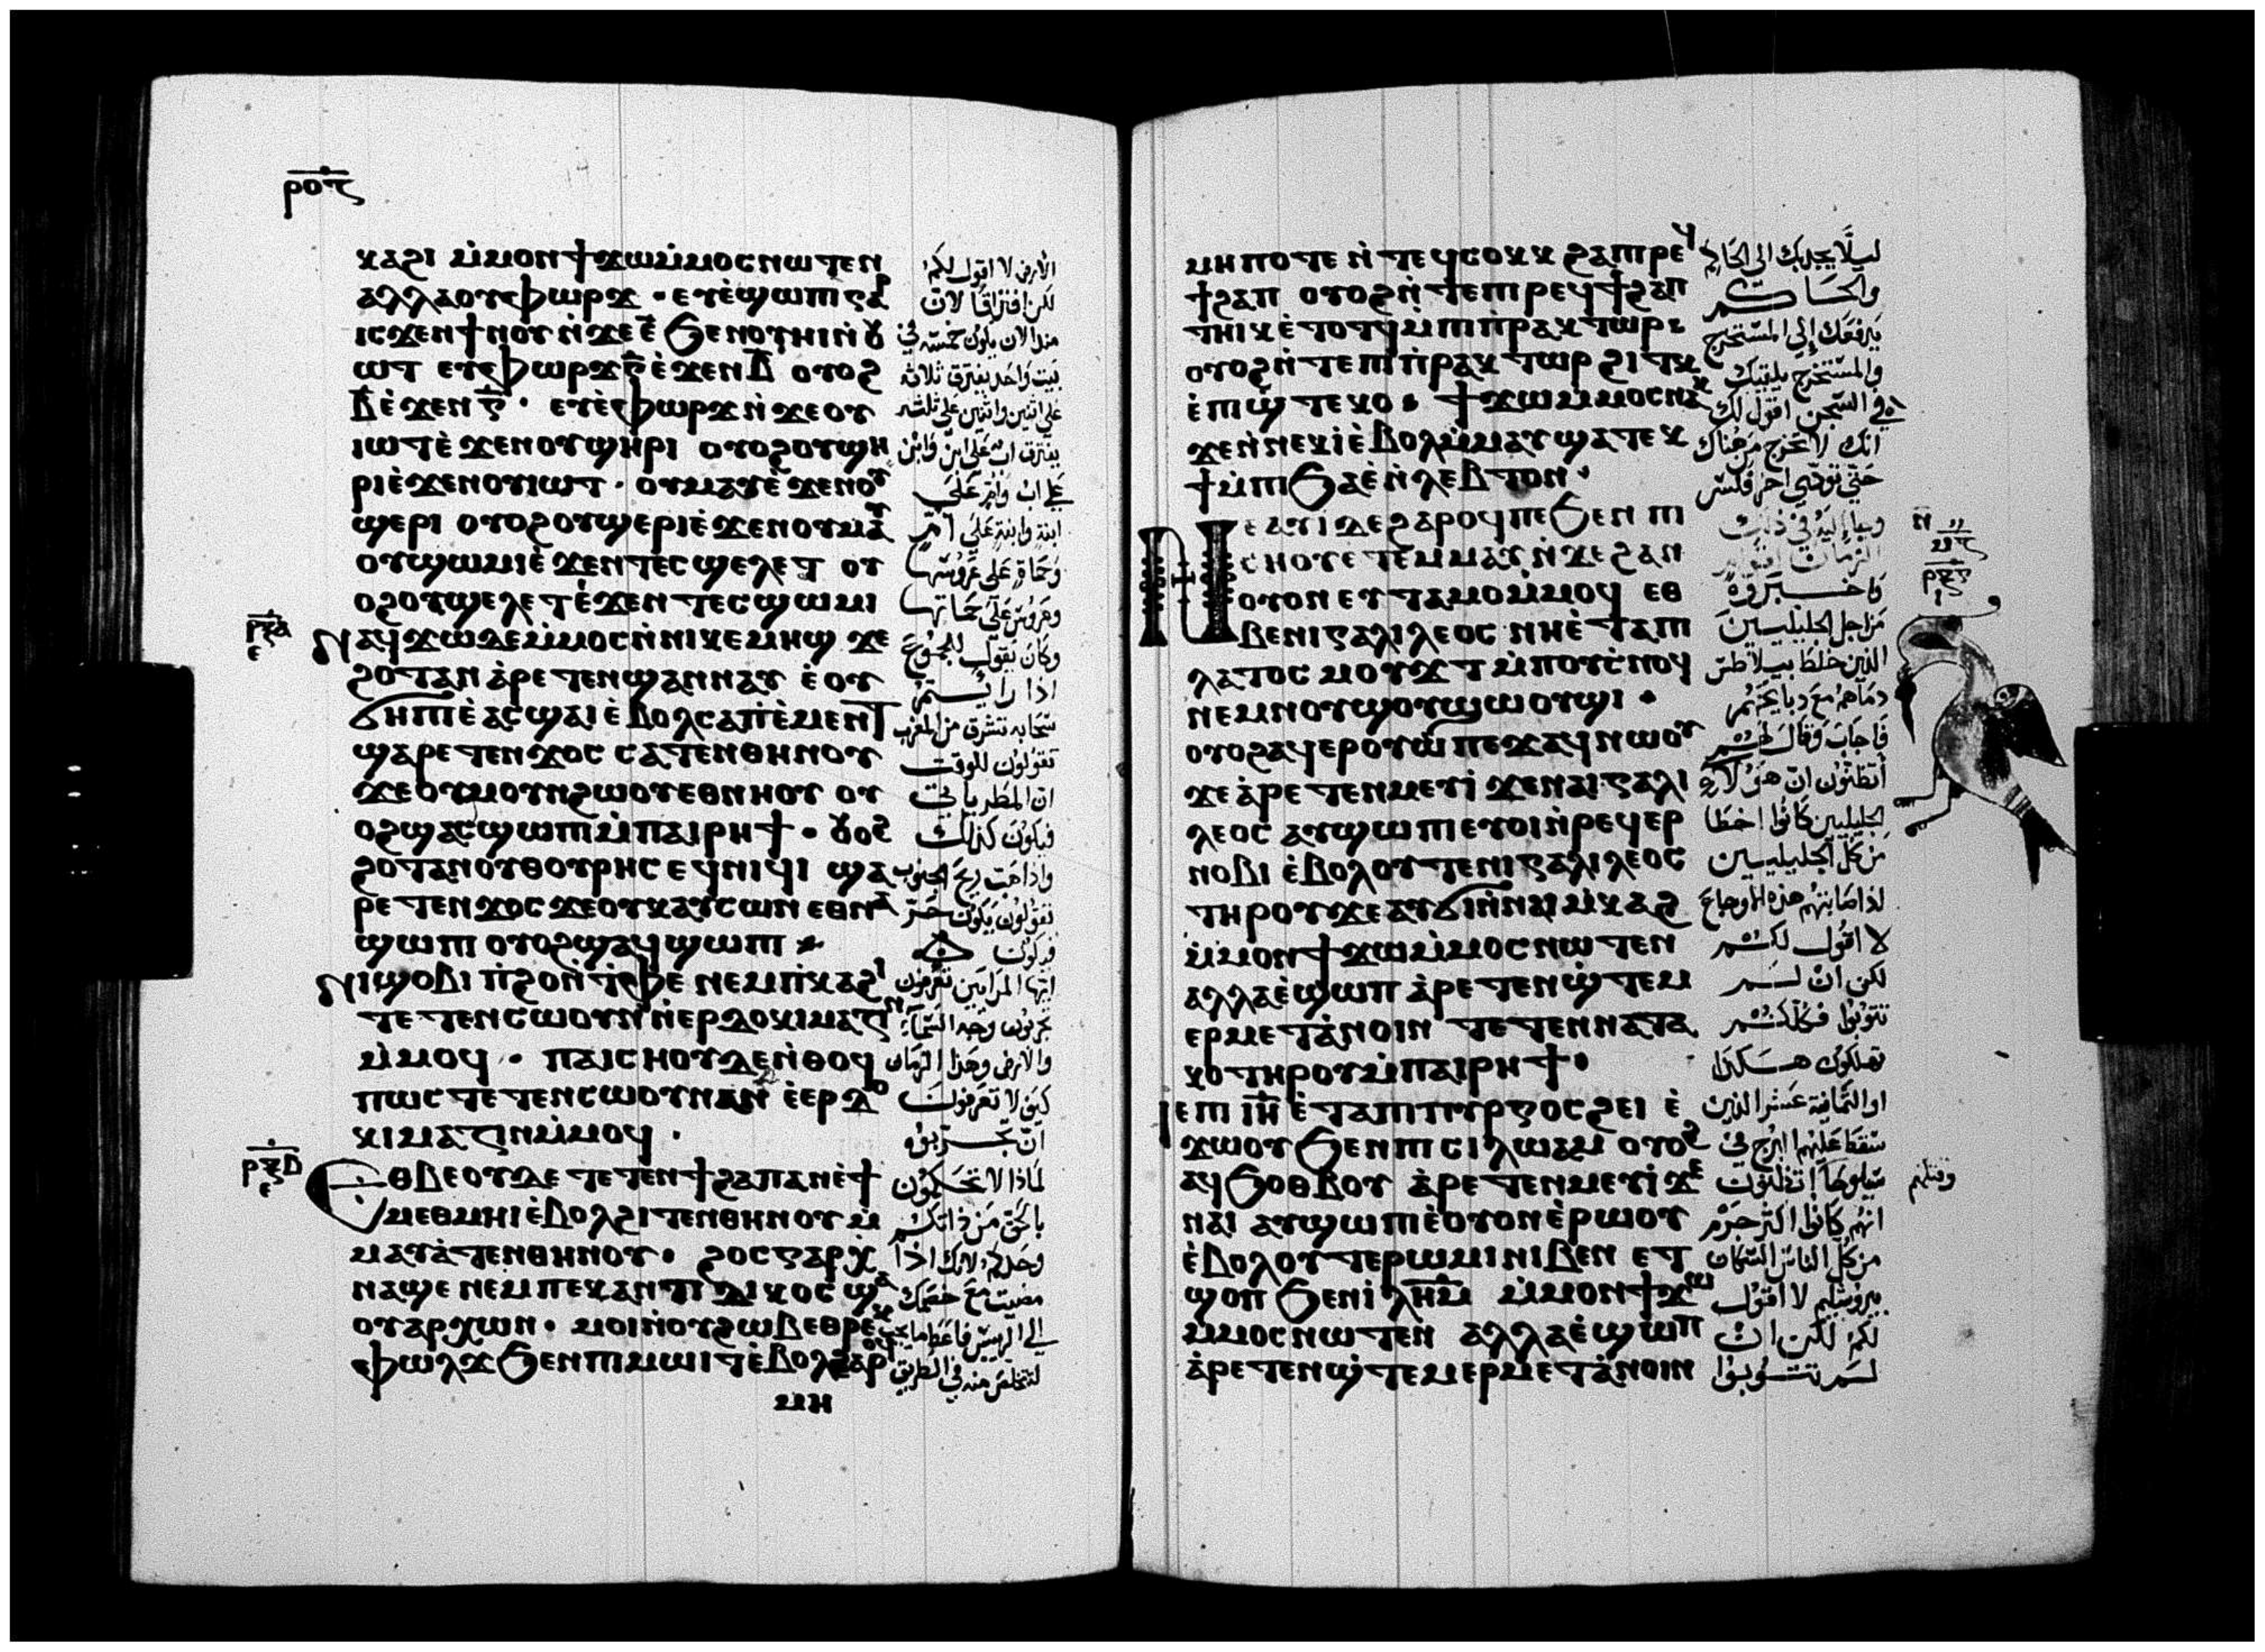 ⲣⲟⲋ
ⲕⲁϩⲓ ⲙ̇ⲙⲟⲛ ϯϫⲱⲙ̇ⲙⲟⲥ ⲛⲱⲧⲉⲛ
ⲁⲗⲗⲁ ⲟⲩⲫⲱⲣϫ · ⲉⲩⲉ̇ϣⲱⲡⲓ ⲅⲁⲣ
ⲓⲥϫⲉⲛ ϯⲛⲟⲩ ⲛ̇ϫⲉ ⲉ̅ ϧⲉⲛ ⲟⲩⲏⲓ ⲛ̇ⲟⲩ
ⲱⲧ ⲉⲩⲫⲱⲣϫ ⲅ̅ ⲉ̇ϫⲉⲛ ⲃ̅ ⲟⲩⲟϩ
ⲃ̅ ⲉ̇ϫⲉⲛ ⲅ̅ · ⲉⲩⲉ̇ⲫⲱⲣϫ ⲛ̇ϫⲉ ⲟⲩ
ⲓⲱⲧ ⲉ̇ϫⲉⲛ ⲟⲩϣⲏⲣⲓ ⲟⲩⲟϩ ⲟⲩϣⲏ
ⲣⲓ ⲉ̇ϫⲉⲛ ⲟⲩⲓⲱⲧ · ⲟⲩⲙⲁⲩ ⲉ̇ϫⲉⲛ ⲟⲩ
ϣⲉⲣⲓ ⲟⲩⲟϩ ⲟⲩϣⲉⲣⲓ ⲉ̇ϫⲉⲛ ⲟⲩⲙⲁⲩ
ⲟⲩϣⲱⲙⲓ ⲉ̇ϫⲉⲛ ⲧⲉⲥϣⲉⲗⲉⲧ ⲟⲩ
ⲟϩ ⲟⲩϣⲉⲗⲉⲧ ⲉ̇ϫⲉⲛ ⲧⲉⲥϣⲱⲙⲓ
ⲣⲝⲁ
ⲉ
ⲛⲁϥϫⲱ ⲇⲉ ⲙ̇ⲙⲟⲥ ⲛ̇ⲛⲓⲕⲉⲙⲏϣ ϫⲉ
ϩⲟⲧⲁⲛ ⲁ̇ⲣⲉⲧⲉⲛϣⲁⲛⲛⲁⲩ ⲉ̇ⲟⲩ
ϭⲏⲡⲓ ⲉ̇ⲁⲥϣⲁⲓ ⲉ̇ⲃⲟⲗ ⲥⲁⲡⲉ̇ⲙⲉⲛⲧ
ϣⲁⲣⲉⲧⲉⲛϫⲟⲥ ⲥⲁⲧⲉⲛⲑⲏⲛⲟⲩ
ϫⲉ ⲟⲩⲙⲟⲩⲛϩⲱⲟⲩ ⲉⲑⲛⲏⲟⲩ ⲟⲩ
ⲟϩ ϣⲁⲥϣⲱⲡⲓ ⲙ̇ⲡⲁⲓⲣⲏϯ · ⲟⲩⲟϩ
ϩⲟⲧⲁⲛ ⲟⲩⲑⲟⲩⲣⲏⲥ ⲉϥⲛⲓϥⲓ ϣⲁ
ⲣⲉⲧⲉⲛϫⲟⲥ ϫⲉ ⲟⲩⲕⲁⲩⲥⲱⲛ ⲉⲑⲛⲁ
ϣⲱⲡⲓ ⲟⲩⲟϩ ϣⲁϥϣⲱⲡⲓ
ⲛⲓϣⲟⲃⲓ ⲡ̇ϩⲟ ⲛ̇ⲧ̇ⲫⲉ ⲛⲉⲙ ⲡ̇ⲕⲁϩⲓ
ⲧⲉⲧⲉⲛⲥⲱⲟⲩⲛ ⲛ̇ⲉⲣⲇⲟⲕⲓⲙⲁⲍⲓⲛ
ⲙ̇ⲙⲟϥ · ⲡⲁⲓⲥⲏⲟⲩ ⲇⲉ ⲛ̇ⲑⲟϥ
ⲡⲱⲥ ⲧⲉⲧⲉⲛⲥⲱⲟⲩⲛ ⲁⲛ ⲉ̇ⲉⲣⲇⲟ
ⲕⲓⲙⲁⲍⲓⲛ ⲙ̇ⲙⲟϥ ·
ⲣⲝⲃ
ⲉ
ⲉⲑⲃⲉ ⲟⲩ ⲇⲉ ⲧⲉⲧⲉⲛϯϩⲁⲡ ⲁⲛ ⲉ̇ϯ
ⲙⲉⲑⲙⲏⲓ ⲉ̇ⲃⲟⲗϩⲓⲧⲉⲛⲑⲏⲛⲟⲩ ⲙ̇
ⲙⲁⲩⲁ̇ⲧⲉⲛⲑⲏⲛⲟⲩ · ϩⲟⲥ ⲅⲁⲣ ⲭ
ⲛⲁϣⲉ ⲛⲉⲙ ⲡⲉⲕⲁⲛⲧⲓⲇⲓⲕⲟⲥ ϣⲁ
ⲟⲩⲁⲣⲭⲱⲛ · ⲙⲟⲓ ⲛ̇ⲟⲩϩⲱⲃ ⲉⲑⲣⲉⲕ
ⲉⲫⲱⲗϫ ϧⲉⲛ ⲡⲓⲙⲱⲓⲧ ⲉ̇ⲃⲟⲗϩⲁⲣⲟϥ
ⲙⲏ
الأرض لا اقول لكم
لكن افتراقًا لان
منذ الان يكون خمسة في
بيت واحد يفترق ثلاثة
على اثنين واثنين على ثلثه
يفترق اب على ابن وابن
على اب وام على
ابنة وابنة على ام
وحماة على عروستها
وعروس على حماتها
وكان يقول للجموع
اذا رايتم
سحابه تشرق من المغرب
تقولون للوقت
ان المطر ياتي
فيكون كذلك
واذا هبت ريح الجنوب
تقولون يكون حر
فيكون
ايها المرايين تعرفون
تجربون وجه السماء
والارض وهذا الزمان
كيف لا تعرفون
ان تجربوه
لماذا لا تحكمون
بالحق من ذاتكم
وحدكم لانك اذا
مضيت مع خصمك
الى الرييس فاعط ما يجب
لتتخلص منه في الطريق
ⲙⲏⲡⲟⲧⲉ ⲛ̇ⲧⲉϥⲥⲟⲕⲕ ϩⲁ ⲡⲓⲣⲉϥ
ϯϩⲁⲡ ⲟⲩⲟϩ ⲛ̇ⲧⲉ ⲡⲓⲣⲉϥϯϩⲁⲡ
ⲧⲏⲓⲕ ⲉ̇ⲧⲟⲧϥ ⲙ̇ⲡⲓⲡ̇ⲣⲁⲕⲧⲱⲣ
ⲟⲩⲟϩ ⲛ̇ⲧⲉ ⲡⲓⲡ̇ⲣⲁⲕⲧⲱⲣ ϩⲓⲧⲕ
ⲉ̇ⲡⲓϣ̇ⲧⲉⲕⲟ · ϯϫⲱⲙⲙⲟⲥ ⲛⲁⲕ
ϫⲉ ⲛ̇ⲛⲉⲕⲓ̇ ⲉ̇ⲃⲟⲗ ⲙ̇ⲙⲁⲩ ϣⲁⲧⲉⲕ
ϯ ⲙ̇ⲡⲓϧⲁⲉ̇ ⲛ̇ⲗⲉⲃⲧⲟⲛ ·
ⲛⲉⲁⲩⲓ̇ ⲇⲉ ϩⲁⲣⲟϥ ⲡⲉ ϧⲉⲛ ⲡⲓ
ⲥⲏⲟⲩ ⲉⲧⲉⲙⲙⲁⲩ ⲛ̇ϫⲉ ϩⲁⲛ
ⲟⲩⲟⲛ ⲉⲩⲧⲁⲙⲟ ⲙ̇ⲙⲟϥ ⲉⲑ
ⲃⲉ ⲛⲓⲅⲁⲗⲓⲗⲉⲟⲥ ⲛⲏ ⲉ̇ⲧⲁ ⲡⲓ
ⲗⲁⲧⲟⲥ ⲙⲟⲩϫⲧ ⲙ̇ⲡⲟⲩⲥ̇ⲛⲟϥ
ⲛⲉⲙ ⲛⲟⲩϣⲟⲩϣⲱⲟⲩϣⲓ ·
ⲟⲩⲟϩ ⲁϥⲉⲣⲟⲩⲱ̇ ⲡⲉϫⲁϥ ⲛⲱⲟⲩ
ϫⲉ ⲁ̇ⲣⲉⲧⲉⲛⲙⲉⲩⲓ̇ ϫⲉ ⲛⲁⲓⲅⲁⲗⲓ
ⲗⲉⲟⲥ ⲁⲩϣⲱⲡⲓ ⲉⲩⲟⲓ ⲛ̇ⲣⲉϥⲉⲣ
ⲛⲟⲃⲓ ⲉ̇ⲃⲟⲗⲟⲩⲧⲉ ⲛⲓⲅⲁⲗⲓⲗⲉⲟⲥ
ⲧⲏⲣⲟⲩ ϫⲉ ⲁⲩϭⲓ ⲛ̇ⲛⲁⲓⲙ̇ⲕⲁⲩϩ
ⲙ̇ⲙⲟⲛ ϯϫⲱⲙ̇ⲙⲟⲥ ⲛⲱⲧⲉⲛ
ⲁⲗⲗⲁ ⲉ̇ϣⲱⲡ ⲁ̇ⲣⲉⲧⲉⲛϣ̇ⲧⲉⲙ
ⲉⲣⲙⲉⲧⲁ̇ⲛⲟⲓⲛ ⲧⲉⲧⲉⲛⲛⲁⲧⲁ
ⲕⲟ ⲧⲏⲣⲟⲩ ⲙ̇ⲡⲁⲓⲣⲏϯ ·
ⲓⲉ ⲡⲓ ⲓ̅ⲏ̅ ⲉ̇ⲧⲁ ⲡⲓⲡⲩⲣⲅⲟⲥ ϩⲉⲓ ⲉ̇
ϫⲱⲟⲩ ϧⲉⲛ ⲡⲓⲥⲓⲗⲱⲁⲙ ⲟⲩⲟϩ
ⲁϥϧⲟⲑⲃⲟⲩ ⲁ̇ⲣⲉⲧⲉⲛⲙⲉⲩⲓ̇ ϫⲉ
ⲛⲁⲓ ⲁⲩϣⲱⲡⲓ ⲉ̇ⲟⲩⲟⲛ ⲉ̇ⲣⲱⲟⲩ
ⲉ̇ⲃⲟⲗⲟⲩⲧⲉ ⲣⲱⲙⲓ ⲛⲓⲃⲉⲛ ⲉⲧ
ϣⲟⲡ ϧⲉⲛ ⲓ̇ⲗ̅ⲏ̅ⲙ̅ ⲙ̇ⲙⲟⲛ ϯϫⲱ
ⲙ̇ⲙⲟⲥ ⲛⲱⲧⲉⲛ ⲁⲗⲗⲁ ⲉ̇ϣⲱⲡ
ⲁ̇ⲣⲉⲧⲉⲛϣ̇ⲧⲉⲙⲉⲣⲙⲉⲧⲁ̇ⲛⲟⲓⲛ
ليلا يجذبك الى الحاكم
والحاكم
يدفعك إلى المستخرج
والمستخرج يلقيك
في السجن اقول لك
انك لا تخرج من هناك
حتى توفي اخر فلس
وجا إليه في ذلك
الزمان
فاخبروه
من اجل الجليليين
الذين خلط بيلاطس
دماهم مع دبايحهم
فاجاب وقال لهم
أتظنون ان هولاي
الجليليين كانوا اخطا
من كل الجليليين
اذ اصابتهم هذه الاوجاع
لا اقول لكم
لكن ان لم
تتوبوا فكلكم
تهلكون هكذا
او الثمانية عشر الذين
سقط عليهم البرج في
سيلوحا اتظنون
وقتلهم
انهم كانوا اكثر جرم
من كل الناس السكان
بيروشليم لا اقول
لكم لكن ان
لم تتوبوا